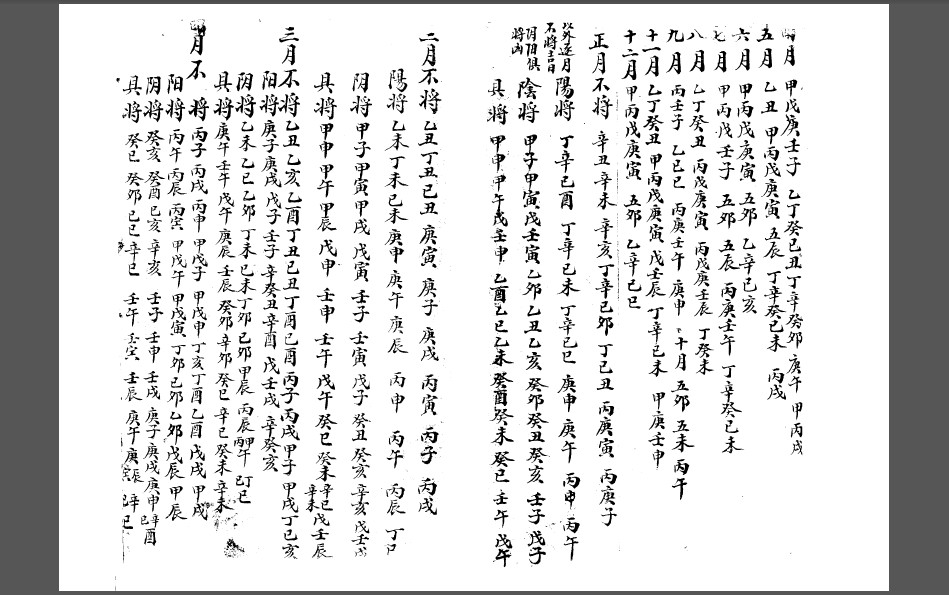 四月 甲戊庚壬子 乙丁癸巳丑 丁辛癸卯 庚午 甲丙戌
五月 乙丑 甲丙戊庚寅 五辰 丁辛癸巳未 丙戌
六月 甲丙戊庚寅 五卯 乙辛己亥
七月 甲丙戊壬子 五卯 五辰 丙庚壬午 丁辛癸己未
八月 乙丁癸丑 丙戊庚寅 丙戊庚壬辰 丁癸未
九月 丙壬子 乙己巳 丙庚壬午 庚申 十月 五卯 五未 丙午
十一月 乙丁癸丑 甲丙戊庚寅 戊壬辰 丁辛己未 甲庚壬申
十二月 甲丙戊庚寅 五卯 乙辛己巳
正月不將 辛丑 辛未 辛亥 丁辛己卯 丁己丑 丙庚寅 丙庚子
以外逐月
不將吉日
阴阳俱
將凶
陽將 丁辛己酉 丁辛己未 丁辛己巳 庚申 庚午 丙申 丙午
陰將 甲子 甲寅 戊壬寅 乙卯 乙丑 乙亥 癸卯 癸丑 癸亥 壬子 戊子
具將 甲申 甲午 戊壬申 乙酉 乙巳 乙未 癸酉 癸未 癸巳 壬午 戊午
二月不將 乙丑 丁丑 己丑 庚寅 庚子 庚戌 丙寅 丙子 丙戌
陽將 乙未 丁未 己未 庚申 庚午 庚辰 丙申 丙午 丙辰 丁巳
阴將 甲子 甲寅 甲戌 戊寅 壬子 壬寅 戊子 癸丑 癸亥 辛亥 戊壬戌
具將 甲申 甲午 甲辰 戊申 壬申 壬午 戊午 癸巳 癸未 辛巳 辛未 戊壬辰
三月不將 乙丑 乙亥 乙酉 丁丑 己丑 丁酉 己酉 丙子 丙戌 甲子 甲戌 丁己亥
阳將 庚子 庚戌 戊子 壬子 辛丑 辛酉 戊壬戌 辛癸亥
阴將 乙未 乙巳 乙卯 丁未 己未 丁卯 己卯 甲辰 丙辰 甲午 丙午 己丁巳
具將 庚午 壬午 戊午 庚辰 壬辰 癸卯 辛卯 癸巳 辛巳 癸未 辛未
四月不將 丙子 丙戌 丙申 甲戊子 甲戊申 丁亥 丁酉 乙酉 戊戌 甲戌
阳將 丙午 丙辰 丙寅 甲戊午 甲戊寅 丁卯 己卯 乙卯 戊辰 甲辰
阴將 癸亥 癸酉 己亥 辛亥 壬子 壬申 壬戌 庚子 庚戌 庚申 己辛酉
具將 癸巳 癸卯 己巳 辛巳 壬午 壬寅 壬辰 庚午 庚辰 庚寅 己辛巳